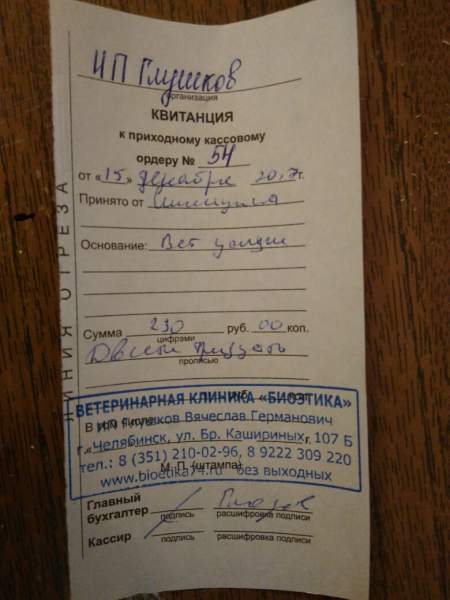 ИП Глушков
организация
КВИТАНЦИЯ
к приходному кассовому
ордеру № 54
от «15» декабря 2017г.
Принято от
Основание: Вет услуги
Сумма 230 руб. 00 коп.
цифрами
Двести тридцать
прописью
руб. коп.
В том числе
ВЕТЕРИНАРНАЯ КЛИНИКА «БИОЭТИКА»
ИП Глушков Вячеслав Германович
г. Челябинск, ул. Бр. Кашириных, 107 Б
тел.: 8 (351) 210-02-96, 8 9222 309 220
www.bioetika74.ru без выходных
М. П. (штампа)
Главный
бухгалтер
подпись расшифровка подписи
Кассир
подпись расшифровка подписи
ЛИНИЯ ОТРЕЗА